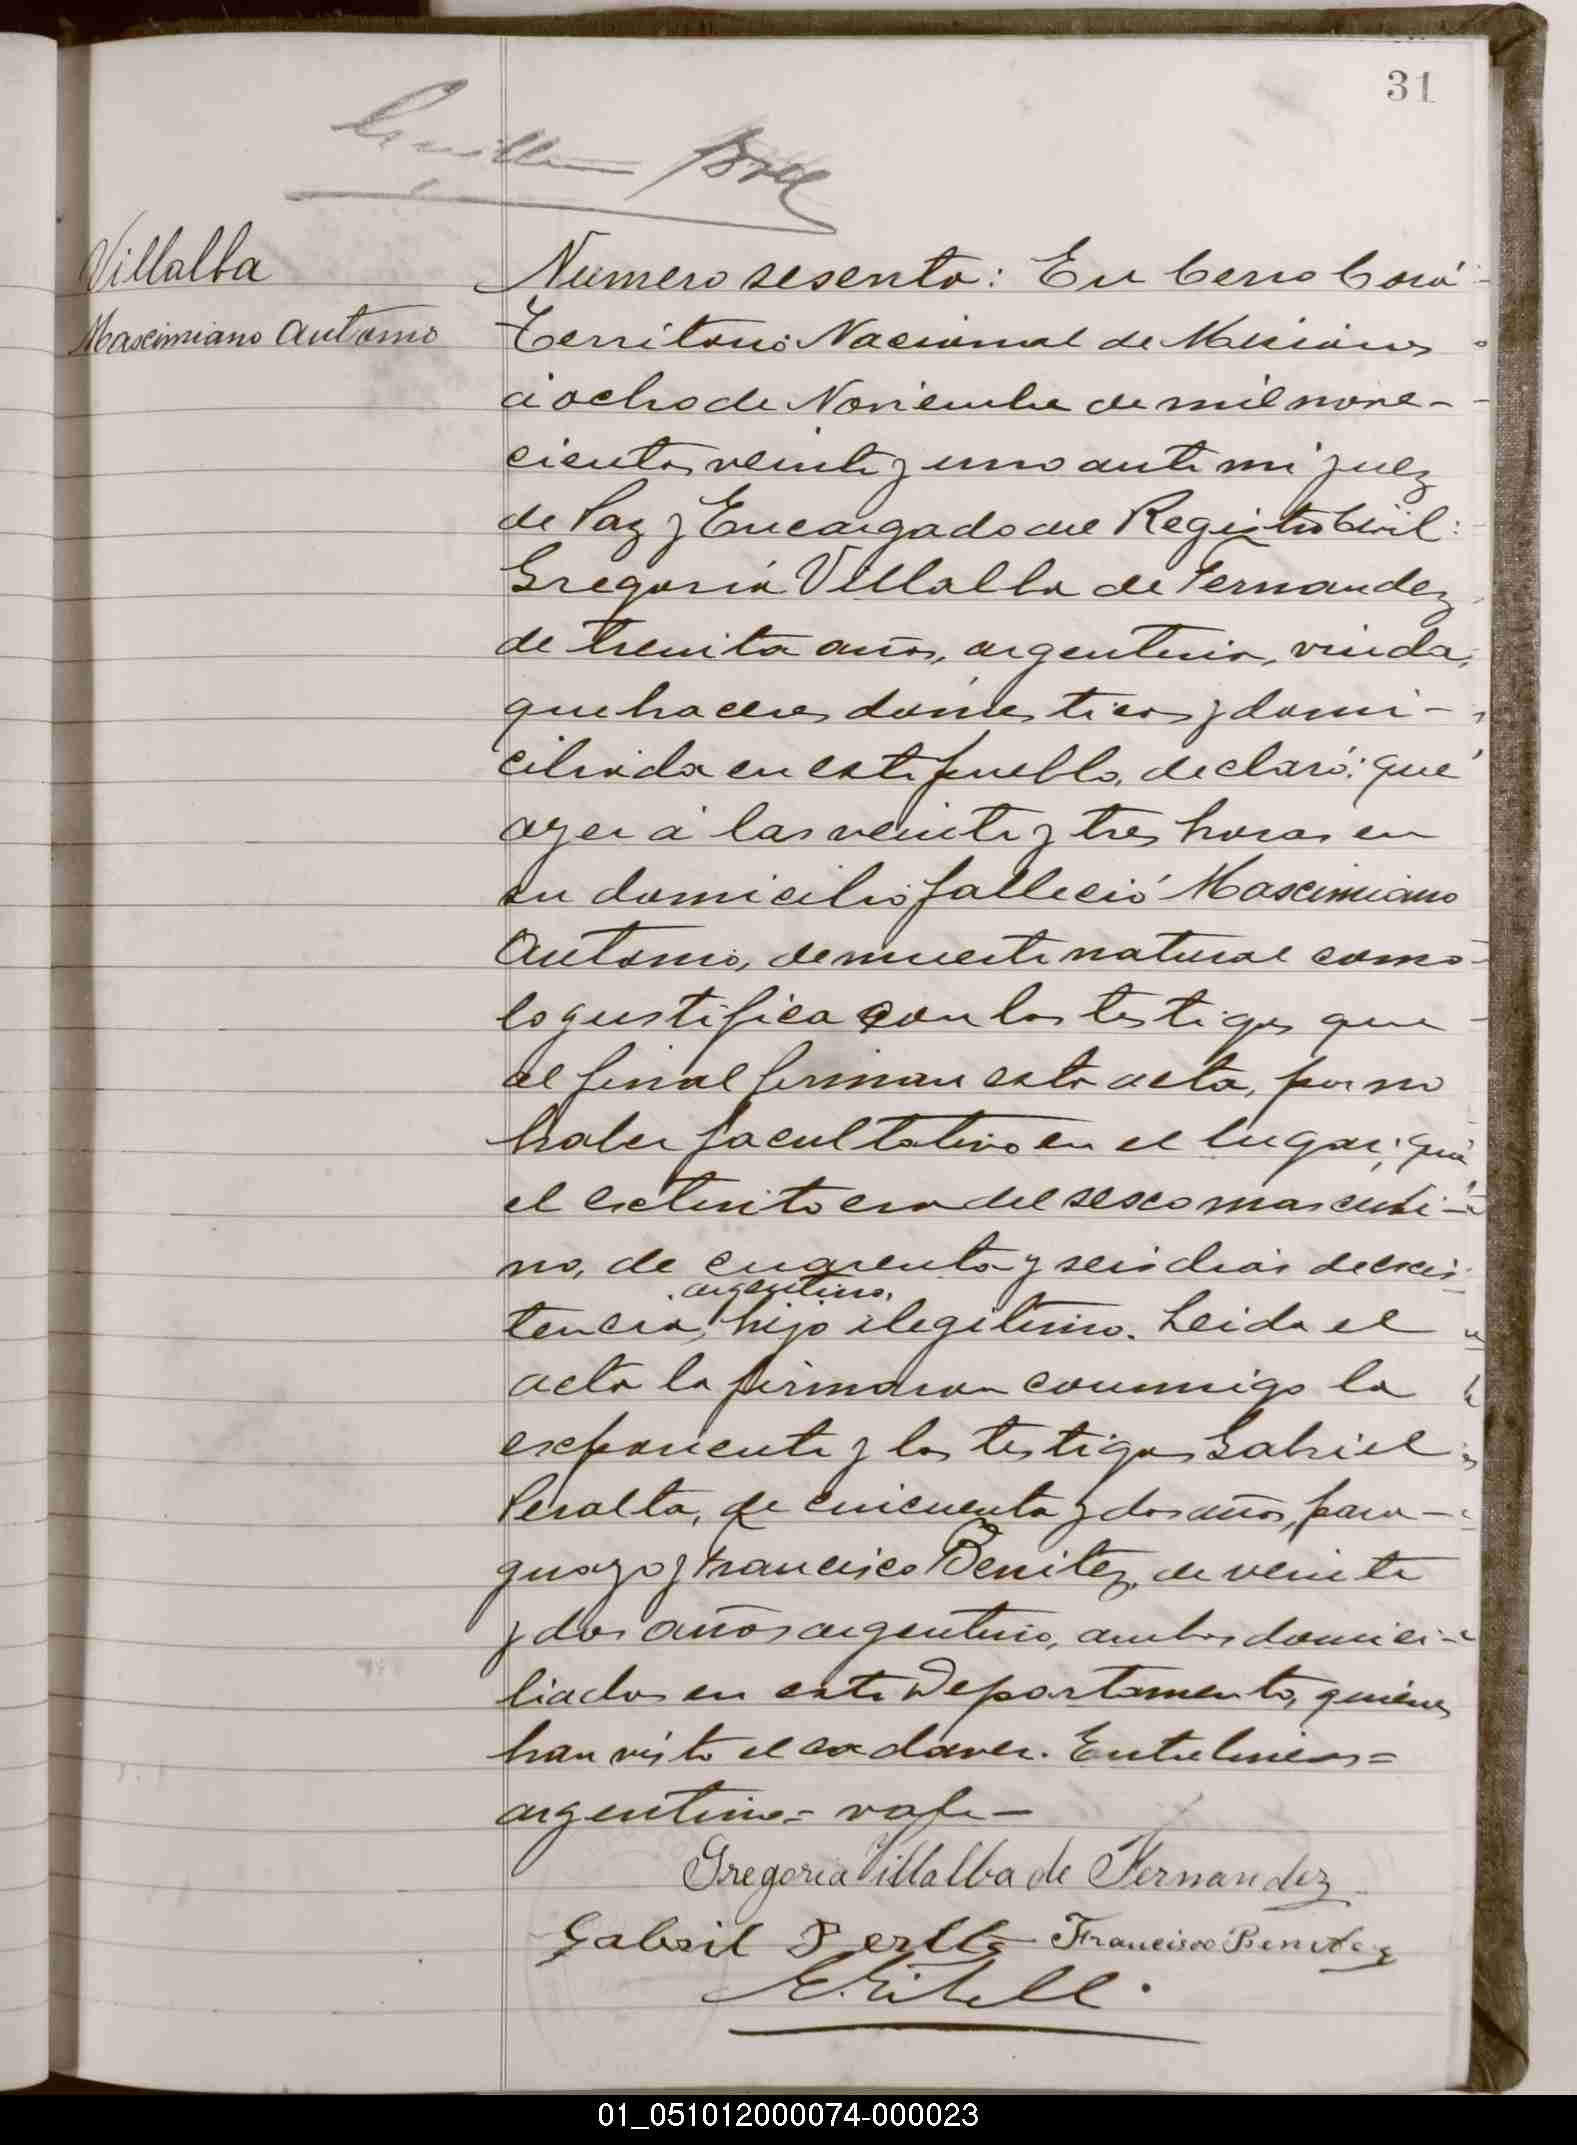 31
Villalba
Mascimiano Antonio
Numero sesenta: En Cerro Corá
Territorio Nacional de Misiones
á ocho de Noviembre de mil nove-
cientos veinte y uno ante mi juez
de Paz y Encargado del Registro Civil:
Gregoria Villalba de Fernandez
de treinta años, argentina, viuda,
quehaceres domésticos y domi-
ciliada en este pueblo, declaró: que
ayer á las veinte y tres horas en
su domicilio falleció Mascimiano
Antonio, de muerte natural como
lo gustifica con los testigos que
al final firman esta acta, por no
haber facultativo en el lugar; que
el esctinto era del sesco masculi-
no, de cuarenta y seis dias de escis-
argentino,
tencia, hijo ilegitimo. Leida el
acta la firmaron conmigo la
escponente y los testigos Gabriel
Peralta, de cincuenta y dos años, para-
guayo y Francisco Benitez, de veinte
y dos años argentino, ambos domici-
liados en este Departamento, quienes
han visto el cadaver. Entrelineas=
argentino= vale—
Gregoria Villalba de Fernandez
Gabriil Perllta Francisco Benitez
01_051012000074-000023